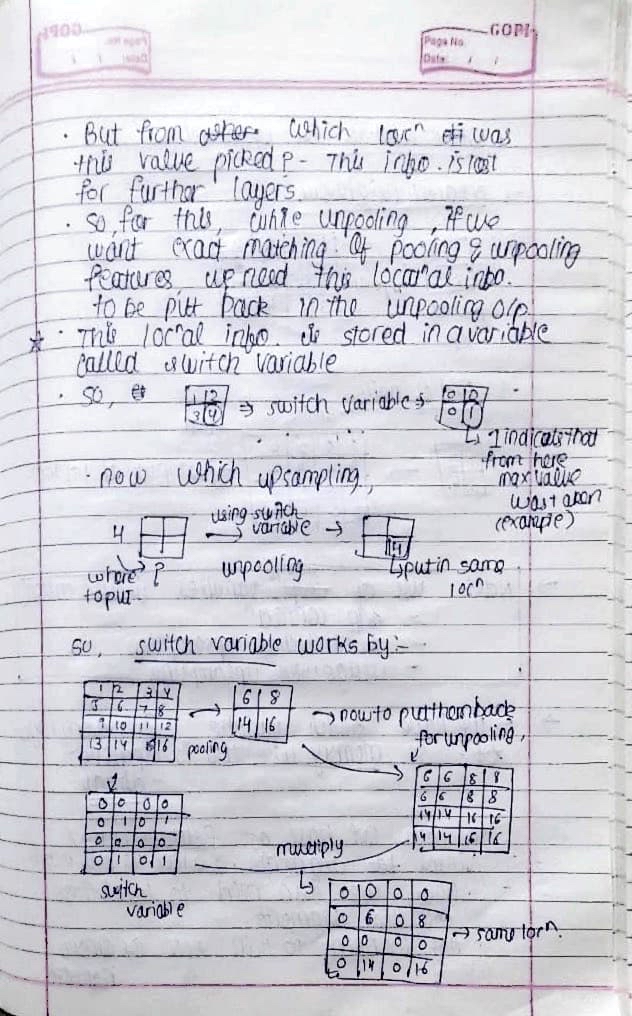 GOPI
Page No.
Date: / /
· But from which locn was
this value picked? - This info. is lost
for further layers.
· So, for this, while unpooling, if we
want exact matching of pooling & unpooling
features, we need this locanal info.
to be putt back in the unpooling o/p.
☆ · This locnal info. is stored in a variable
called switch variable
· So, 1 2 ⇒ switch variable ⇒ 0 0
3 4 0 1
↳ 1 indicates that
from here
max value
was taken
(example)
· now which upsampling,
4 using switch variable →
where ? to put
unpooling
4
↳ put in same
locn
so, switch variable works by:-
1 2 3 4
5 6 7 8
9 10 11 12
13 14 15 16
→
pooling
6 8
14 16
→ now to put them back
for unpooling,
6 6 8 8
6 6 8 8
14 14 16 16
14 14 16 16
0 0 0 0
0 1 0 1
0 0 0 0
0 1 0 1
switch
variable
multiply
0 0 0 0
0 6 0 8
0 0 0 0
0 14 0 16
→ same locn.